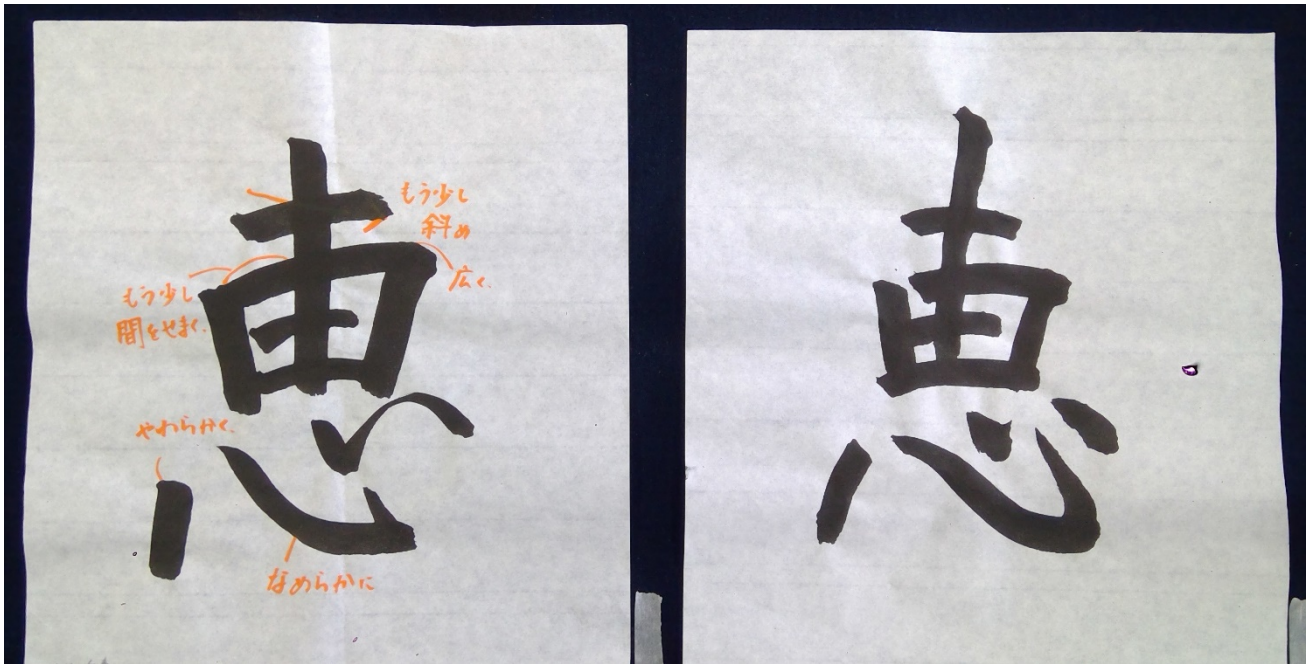 恵
もう少し
斜め
広く
もう少し
間をせまく
やわらかく
なめらかに
恵